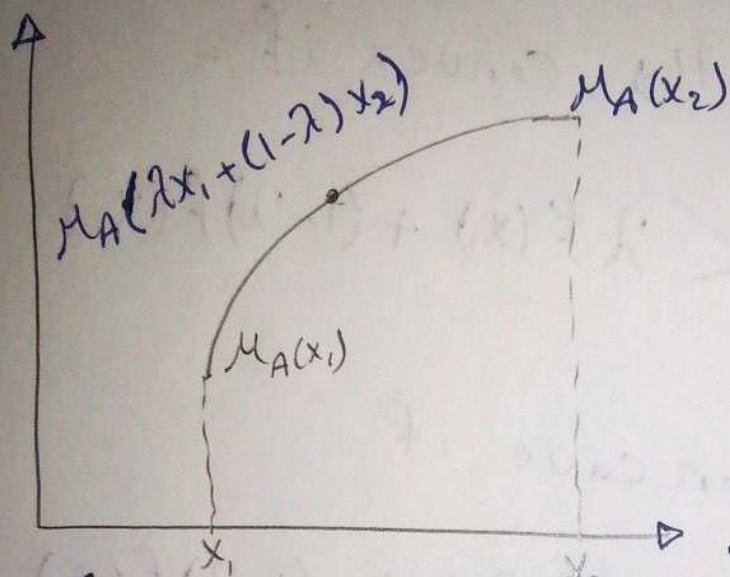 μ_A(x₂)
μ_A(λx₁+(1-λ)x₂)
μ_A(x₁)
x₁